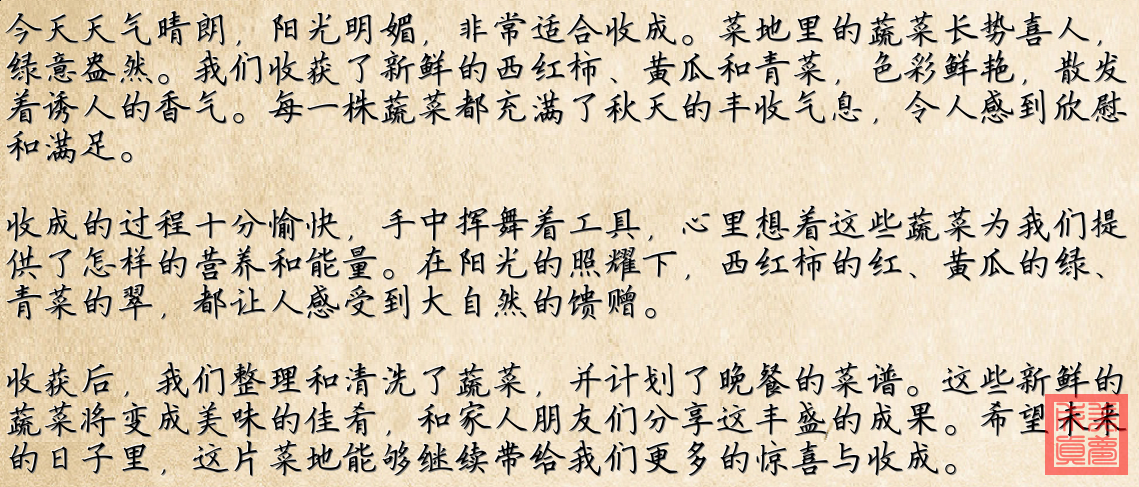 今天天气晴朗，阳光明媚，非常适合收成。菜地里的蔬菜长势喜人，
绿意盎然。我们收获了新鲜的西红柿、黄瓜和青菜，色彩鲜艳，散发
着诱人的香气。每一株蔬菜都充满了秋天的丰收气息，令人感到欣慰
和满足。
收成的过程十分愉快，手中挥舞着工具，心里想着这些蔬菜为我们提
供了怎样的营养和能量。在阳光的照耀下，西红柿的红、黄瓜的绿、
青菜的翠，都让人感受到大自然的馈赠。
收获后，我们整理和清洗了蔬菜，并计划了晚餐的菜谱。这些新鲜的
蔬菜将变成美味的佳肴，和家人朋友们分享这丰盛的成果。希望未来
的日子里，这片菜地能够继续带给我们更多的惊喜与收成。